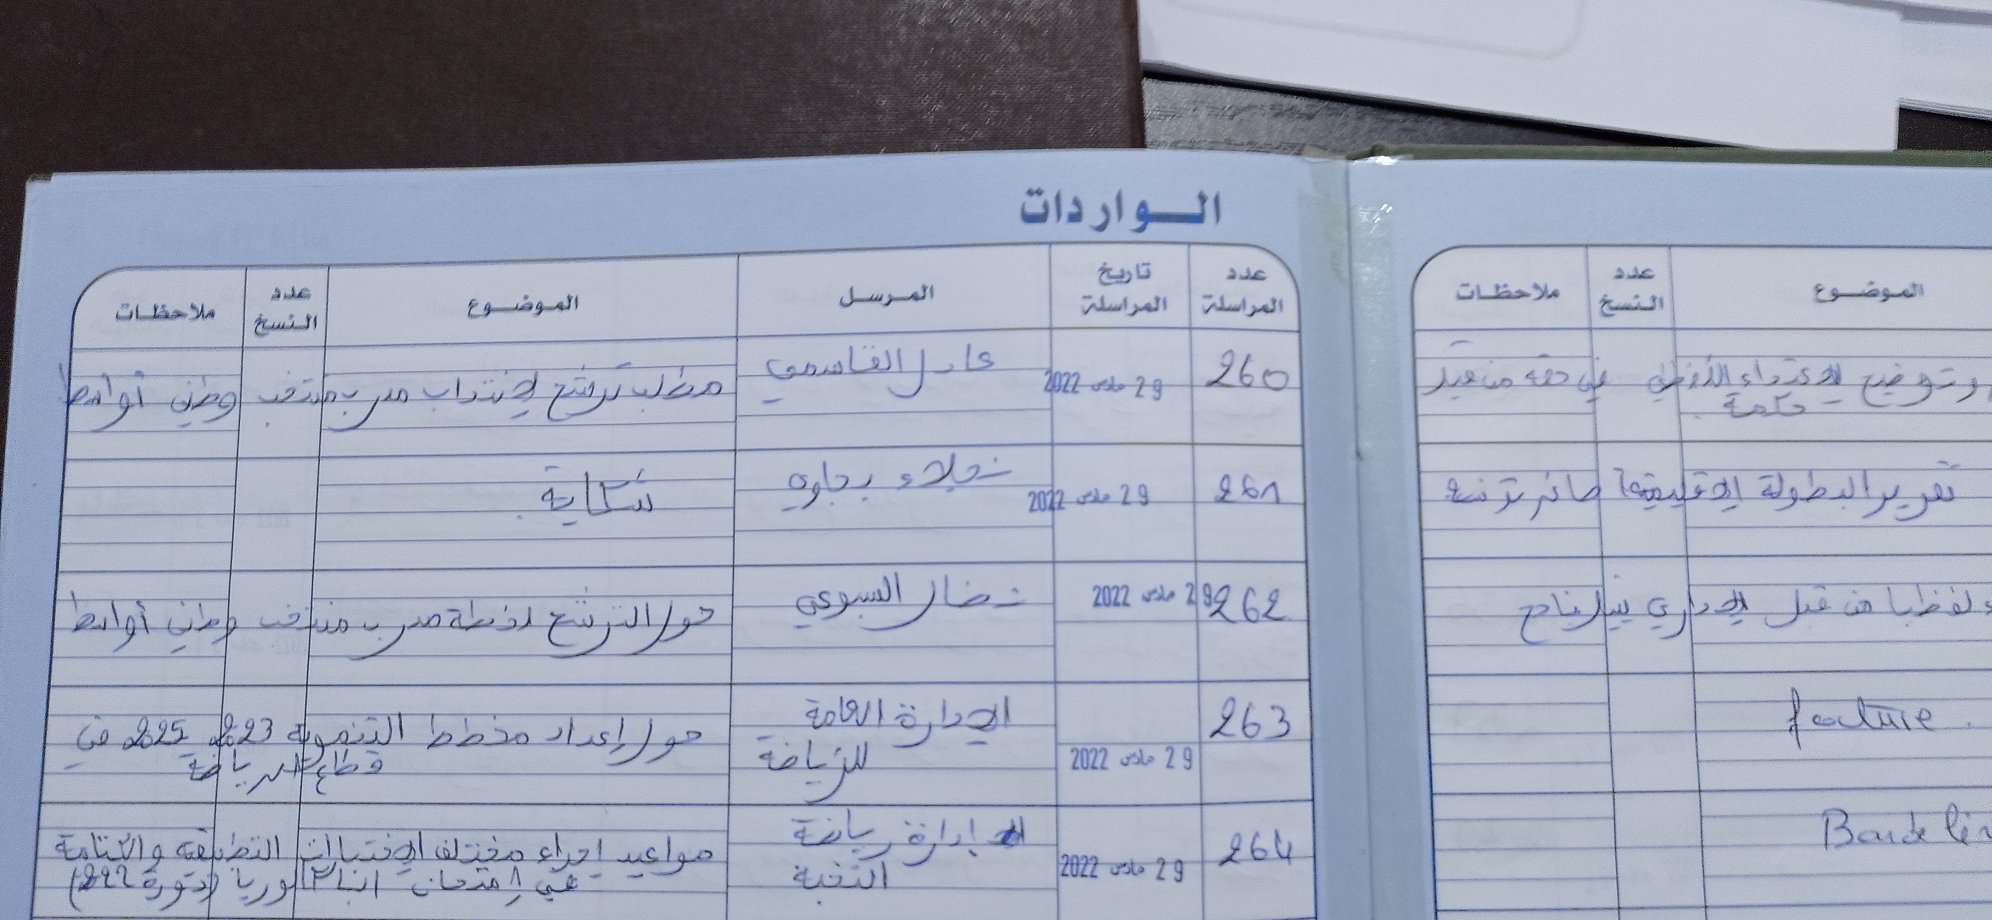 الواردات
عدد المراسلة
تاريخ المراسلة
المرسل
الموضوع
عدد النسخ
ملاحظات
260
29 مارس 2022
عادل القاسمي
مطلب ترشح لانتداب مدرب منتخب وطني أواسط
261
29 مارس 2022
نجلاء بجاوي
شكاية
262
29 مارس 2022
نضال السبوعي
حول الترشح لخطة مدرب منتخب وطني أواسط
263
29 مارس 2022
الإدارة العامة
للرياضة
حول إعداد مخطط التنموية 2023 2025 في
قطاع الرياضة
264
29 مارس 2022
إدارة رياضة
النخبة
مواعيد إجراء مختلف الاختبارات التطبيقية والكتابية
في امتحان الباكالوريا (دورة 2022)
الموضوع
عدد النسخ
ملاحظات
وتوضيح الاعتداء اللفظي في حقه من قبل
تقرير البطولة الإقليمية
لفظيا من قبل الإداري
facture.